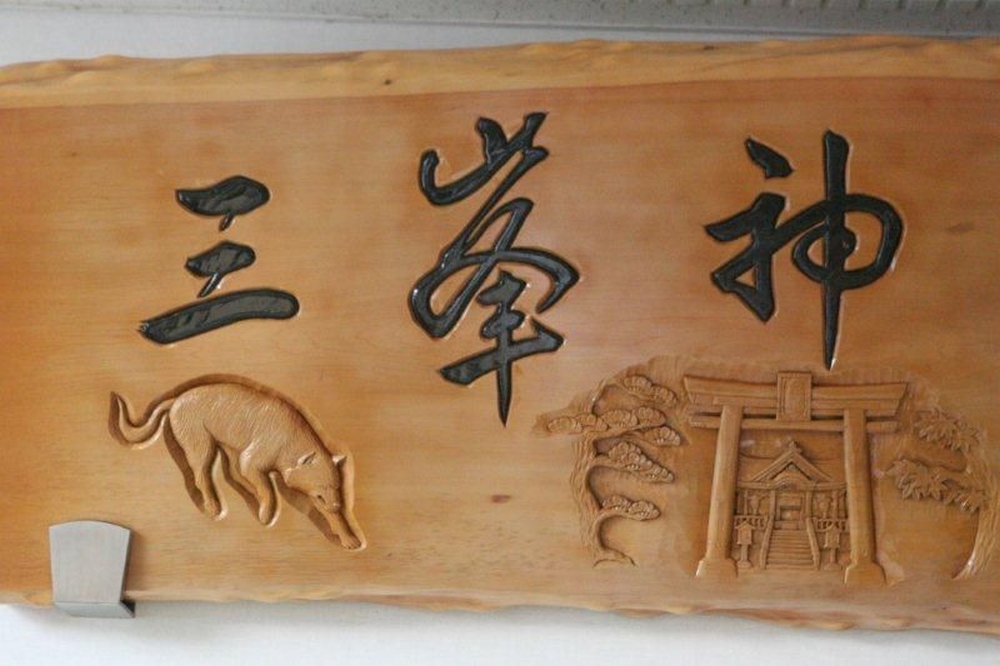 三峯神